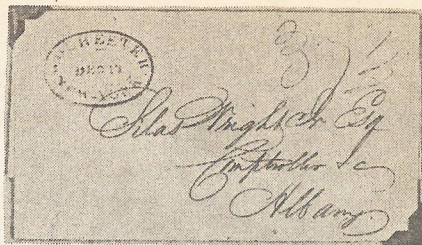 ROCHESTER
DEC 17
NEW-YORK
Silas Wright Jr Esq
Comptroller &c
Albany